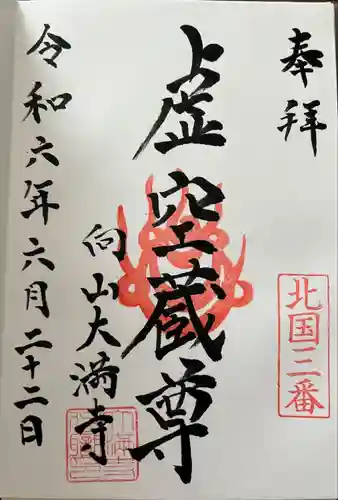 奉拝
北国三番
上虚空蔵尊
向山大満寺
令和六年六月二十二日